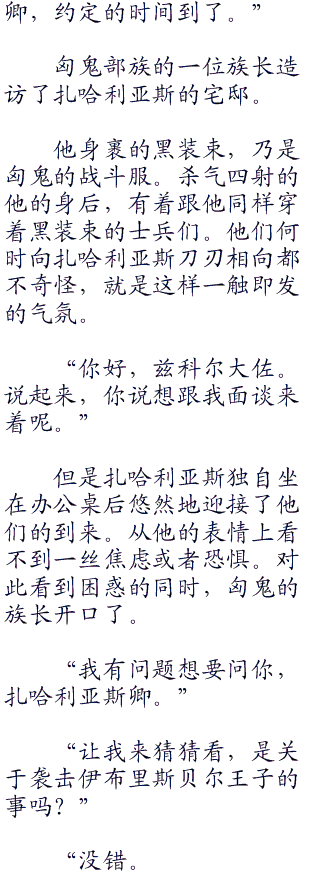 卿，约定的时间到了。”
匈鬼部族的一位族长造
访了扎哈利亚斯的宅邸。
他身裹的黑装束，乃是
匈鬼的战斗服。杀气四射的
他的身后，有着跟他同样穿
着黑装束的士兵们。他们何
时向扎哈利亚斯刀刃相向都
不奇怪，就是这样一触即发
的气氛。
“你好，兹科尔大佐。
说起来，你说想跟我面谈来
着呢。”
但是扎哈利亚斯独自坐
在办公桌后悠然地迎接了他
们的到来。从他的表情上看
不到一丝焦虑或者恐惧。对
此看到困惑的同时，匈鬼的
族长开口了。
“我有问题想要问你，
扎哈利亚斯卿。”
“让我来猜猜看，是关
于袭击伊布里斯贝尔王子的
事吗？”
“没错。